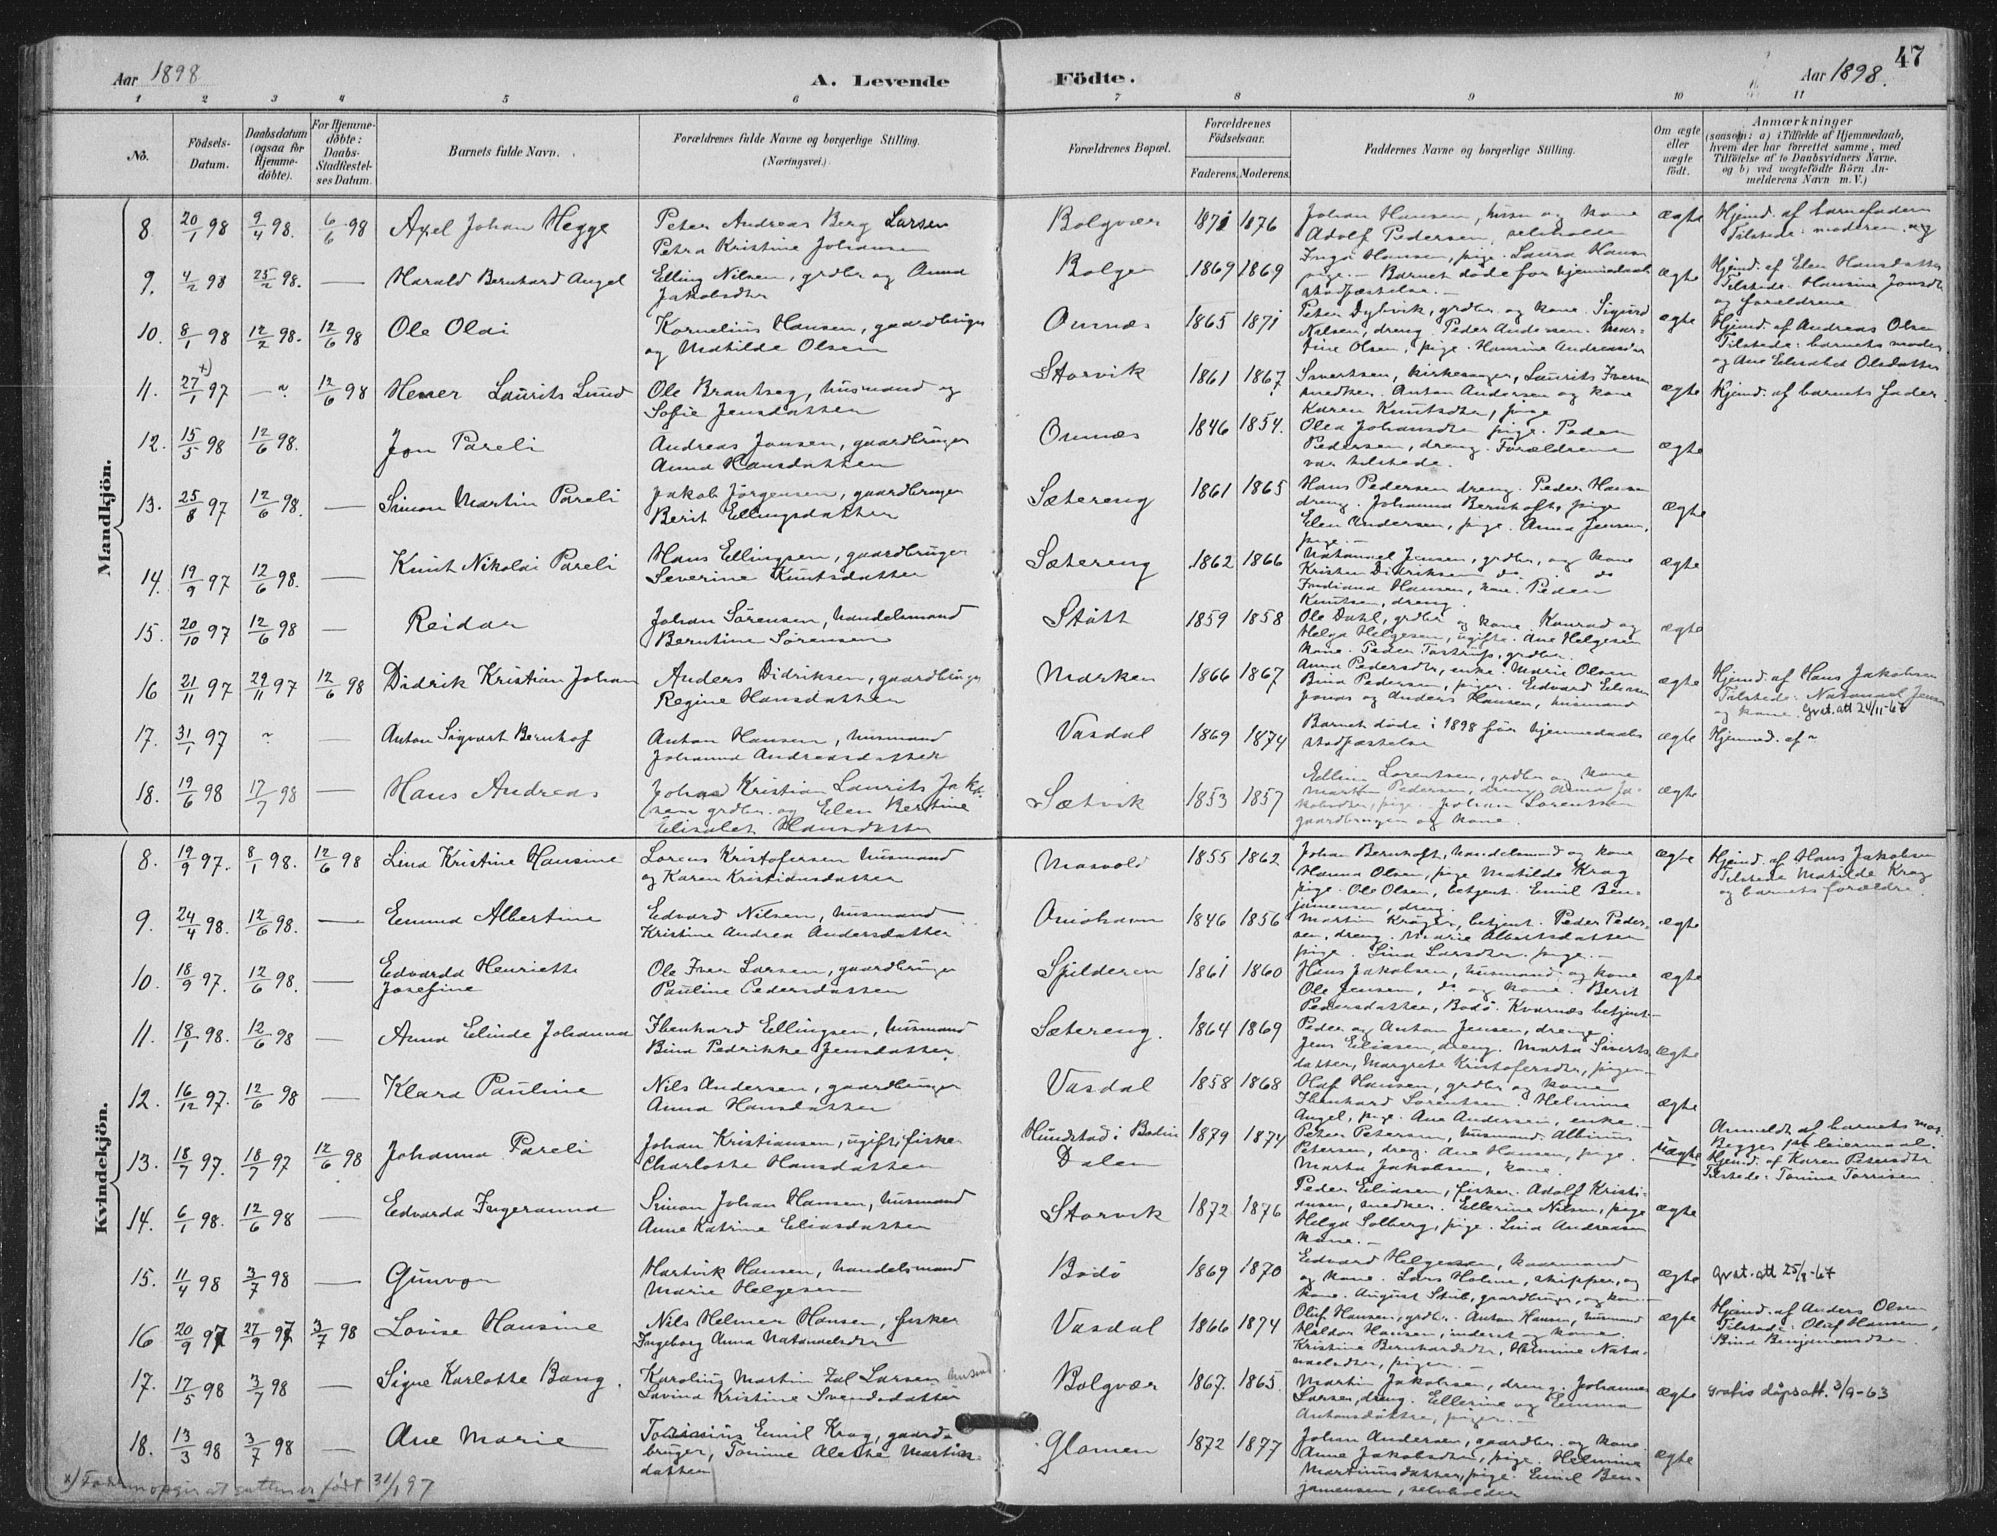 47
Aar 1898
A. Levende
Födte.
Aar 1898.
1 2 3 4 5 6 7 8 9 10 11
No.
Födsels-Datum.
Daabsdatum (ogsaa for Hjemmedöbte).
For Hjemmedöbte: Daabs-Stadfæstelses Datum.
Barnets fulde Navn.
Forældrenes fulde Navne og borgerlige Stilling.
(Næringsvei.)
Forældrenes Bopæl.
Forældrenes Födselsaar.
Faderens. Moderens.
Faddernes Navne og borgerlige Stilling.
Om ægte eller uægte födt.
Anmærkninger
(saasom: a) i Tilfælde af Hjemmedaab, hvem der har forrettet samme, med Tilföielse af to Daabsvidners Navne, og b) ved uægtefödte Börn Anmelderens Navn m. V.)
Mandkjön.
8. 20/1 98 9/4 98. 6/6 98 Axel Johan Hegge
Peter Andreas Berg Larsen
Petra Kristine Johansen
Bolgvær 1871 1876
Johan Hansen, husm og kone
Adolf Pedersen, selvholder
Inga Hansen, pige. Laura Hansen
ægte
Hjemd. af barnefaderen
Tilstede: moderen og
9. 4/2 98 25/2 98. — Harald Bernhard Angel
Elling Nilsen, grdbr og Anna
Jakobsdtr
Bolgen 1869 1869
pige. — Barnet døde før hjemmedaabs
stadfæstelse. —
ægte
Hjemd. af Elen Hansdatter
Tilstede: Hansine Jonsdtr
og forældrene
10. 8/1 98 12/2 98. 12/6 98 Ole Oldi
Kornelius Hansen, gaardbruger
og Mathilde Olsen
Ornnæs 1865 1871
Peter Dybvik, grdbr. og kone. Sigurd
Nilsen, dreng. Peder Andersen. Mar-
tine Olsen, pige. Hansine Andreasen
ægte
Hjemd. af Andreas Olsen
Tilstede: barnets moder
og Ane Elisabet Olsdatter
11. 27/1 97 x) — 12/6 98 Hemer Laurits Lund
Ole Brantseg, husmand og
Sofie Jensdatter
Storvik 1861 1867
Sivertsen, kirkesanger, Laurits Iversen
snedker. Anton Andersen og kone
Karen Knutsdtr, pige
ægte
Hjemd. af barnets fader.
12. 15/5 98 12/6 98. Jon Pareli
Andreas Jonsen, gaardbruger
Anna Hansdatter
Ornnæs 1846 1854.
Olea Johansdtr pige. Peder
Pedersen, dreng. Forældrene
var tilstede.
ægte
13. 25/8 97 12/6 98. — Simon Martin Pareli
Jakob Jörgensen, gaardbruger
Berit Ellingsdatter
Sætereng 1861 1865
Hans Pedersen dreng. Peder Hansen
dreng. Johanna Bernhoft, pige
Elen Andersen, pige. Anna Jensen,
pige. —
ægte
14. 19/9 97 12/6 98. — Knut Nikolai Pareli
Hans Ellingsen, gaardbruger
Severine Knutsdatter
Sætereng 1862 1866
Natanael Jensen, grdbr, og kone
Kristen Didriksen do. do
Ferdinand Hansen, kone. Peder
Knutsen, dreng.
ægte
15. 20/10 97 12/6 98 — Reidar
Johan Sörensen, handelsmand
Berntine Sörensen
Stött 1859 1858
Ole Dahl, grdbr og kone. Konrad og
Helga Helgesen, ugifte. Ane Helgesen
kone. Peder Tostrup, grdbr.
ægte
16 21/11 97 29/11 97 12/6 98 Didrik Kristian Johan
Anders Didriksen, gaardbruger
Regine Hansdatter
Marken 1866 1867
Anna Pedersdtr, enke. Marie Olsen
Bina Pedersen, piger. Edvard Eliasen
Jonas og Anders Hansen, husmand
ægte
Hjemd. af Hans Jakobsen
Tilstede: Natanael Jensen
og kone. Gvat. att 24/11-67
17. 31/1 97 — Anton Sigvart Bernhof
Anton Hansen, husmand
Johanna Andreasdatter
Vasdal 1869 1874
Barnet døde i 1898 før hjemmedaabs
stadfæstelse
ægte
Hjemmed. af
18. 19/6 98 17/7 98 — Hans Andreas
Johan Kristian Laurits Jakob-
sen grdbr. og Elen Bertine
Elisabet Hansdatter
Sætvik 1853 1857
Elling Lorentsen, grdbr og kone
Martin Pedersen, dreng. Anna Ja-
kobsdtr, pige. Johan Sörentsen
gaardbruger og kone.
ægte
Kvindekjön.
8. 19/9 97. 8/1 98. 12/6 98 Lina Kristine Hansine
Lorens Kristofersen husmand
og Karen Kristiansdatter
Masvold 1855 1862
Johan Bernhoft, handelsmand og kone
Hanna Olsen, pige Matilde Krog
pige. Ole Olsen, betjent. Emil Ben-
jamensen, dreng.
ægte
Hjemd. af Hans Jakobsen
Tilstede Matilde Krog
og barnets forældre.
9. 24/4 98. 12/6 98. — Emma Albertine
Edvard Nilsen, husmand
Kristine Andrea Andersdatter
Ørnshavn 1846 1856
Martin Krøger, betjent. Peder Peder-
sen, dreng. Marie Albertsdatter
pige. Lina Larsdtr. pige. —
ægte
10. 18/9 97. 12/6 98. — Edvarda Henriette
Josefine
Ole Iver Larsen, gaardbruger
Pauline Pedersdatter
Spilderen 1861 1860
Hans Jakobsen, husmand og kone
Ole Jensen, do og kone. Berit
Pedersdatter, Bodö. Kvarnæs betjent —
ægte
11. 18/1 98. 12/6 98 — Anna Elinde Johanna
Ibenhard Ellingsen, husmand
Bina Fredrikke Jensdatter
Sætereng. 1864 1869
Peder og Anton Jensen, drenge.
Jens Eliasen, dreng. Marta Siverts-
datter, Margrete Kristofersdtr, piger —
ægte
12. 16/12 97. 12/6 98 — Klara Pauline
Nils Andersen, gaardbruger
Anna Hansdatter
Vasdal 1858 1868
Olaf Hansen, grdbr og kone
Ibenhard Sörentsen. Helmine
Angel, pige. Ane Andersen, enke. —
ægte
13. 18/7 97. 18/7 97 12/6 98 Johanna Pareli
Johan Kristiansen, ugift, fisker
Charlotte Hansdatter
Hundstad i Bodin
Dalen
1879 1874
Peter Petersen, husmand. Albinus
Petersen, dreng. Ane Hansen, pige.
Marta Jakobsen, kone.
Uægte
Anmeldt af barnets mor.
Begges 1ste leiermaal.
Hjemd. af Karen Petersdtr
Tilstede: Tomine Torrisen.
14. 6/1 98. 12/6 98 — Edvarda Ingeranna
Simon Johan Hansen, husmand
Anne Katrine Eliasdatter
Storvik 1872 1876
Peder Eliasen, fisker. Adolf Kristi-
ansen, snedker. Ellerine Nilsen, pige
Helga Solberg, pige. Lina Andreasen
kone. —
ægte
15. 11/4 98 3/7 98 — Gunvor
Hartvik Hansen, handelsmand
Marie Helgesen
Bodö 1869 1870
Edvard Helgesen, kaarmand
og kone. Lars Holme, skipper, og
kone. August Stub, gaardbruger, og kone. —
ægte
Gvat. att 25/8-67
16 20/9 97 27/9 97 3/7 98 Lovise Hansine
Nils Helmer Hansen, fisker
Ingeborg Anna Natanaelsdtr
Vasdal 1866 1874
Oluf Hansen, grdbr. Anton Hansen, husmand
Haldor Hansen, inderst og kone.
Kristine Bernhardsdtr, Hermine Nata-
naelsdtr, piger. —
ægte
Hjemd. af Anders Olsen
Tilstede: Oluf Hansen,
Bina Benjamensdtr.
17. 17/5 98 3/7 98 — Signe Karlotte Bang.
Karolius Martin Zal Larsen
Lovina Kristine Svendsdatter
Bolgvær 1867. 1865.
Martin Jakobsen, dreng. Johannes
Larsen, dreng. Ellerine og Emma
Antonsdattre, piger. —
ægte
Gratis dåpsatt. 3/9-63
18. 13/3 98 3/7 98 — Ane Marie
Torinius Emil Krog, gaard-
bruger, Tomine Alethe Martins-
datter
Glomen 1872 1877
Johan Andersen, gaardbr. og kone.
Anne Jakobsdtr, pige. Helmine
Martinusdatter, pige. Emil Ben-
jamensen, selvholder
ægte
x) Faderen opgir at gutten er født 31/1 97